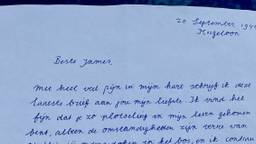 20 September 194
Beste James,
Met heel veel pijn in mijn hart schrijf ik deze
laatste brief aan jou mijn liefste. Ik vind het
fijn dat je zo plotseling in mijn leven gekomen
bent, alleen de omstandigheden zijn verre van
in het bos, en ik continu